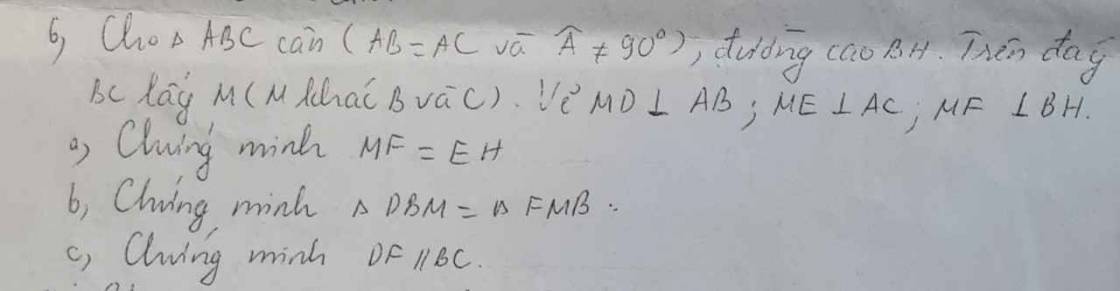 6, Cho Δ ABC cân (AB = AC và Â ≠ 90°), đường cao BH. Trên đáy
BC lấy M (M khác B và C). Vẽ MD ⊥ AB ; ME ⊥ AC ; MF ⊥ BH.
a, Chứng minh MF = EH
b, Chứng minh Δ DBM = Δ FMB .
c, Chứng minh DF // BC.